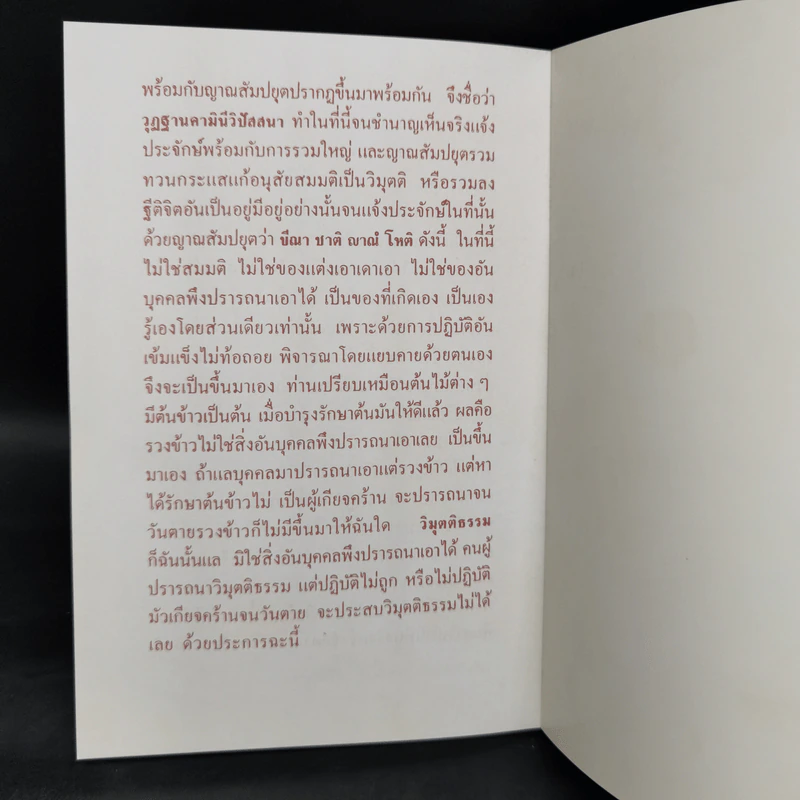 พร้อมกับญาณสัมปยุตปรากฏขึ้นมาพร้อมกัน จึงชื่อว่า
วุฏฐานคามินีวิปัสสนา ทำในที่นี้จนชำนาญเห็นจริงแจ้ง
ประจักษ์พร้อมกับการรวมใหญ่ และญาณสัมปยุตรวม
ทวนกระแสแก้อนุสัยสมมติเป็นวิมุตติ หรือรวมลง
ฐีติจิตอันเป็นอยู่มีอยู่อย่างนั้นจนแจ้งประจักษ์ในที่นั้น
ด้วยญาณสัมปยุตว่า ขีณา ชาติ ญาณํ โหติ ดังนี้ ในที่นี้
ไม่ใช่สมมติ ไม่ใช่ของแต่งเอาเดาเอา ไม่ใช่ของอัน
บุคคลพึงปรารถนาเอาได้ เป็นของที่เกิดเอง เป็นเอง
รู้เองโดยส่วนเดียวเท่านั้น เพราะด้วยการปฏิบัติอัน
เข้มแข็งไม่ท้อถอย พิจารณาโดยแยบคายด้วยตนเอง
จึงจะเป็นขึ้นมาเอง ท่านเปรียบเหมือนต้นไม้ต่าง ๆ
มีต้นข้าวเป็นต้น เมื่อบำรุงรักษาต้นมันให้ดีแล้ว ผลคือ
รวงข้าวไม่ใช่สิ่งอันบุคคลพึงปรารถนาเอาเลย เป็นขึ้น
มาเอง ถ้าแลบุคคลมาปรารถนาเอาแต่รวงข้าว แต่หา
ได้รักษาต้นข้าวไม่ เป็นผู้เกียจคร้าน จะปรารถนาจน
วันตายรวงข้าวก็ไม่มีขึ้นมาให้ฉันใด วิมุตติธรรม
ก็ฉันนั้นแล มิใช่สิ่งอันบุคคลพึงปรารถนาเอาได้ คนผู้
ปรารถนาวิมุตติธรรม แต่ปฏิบัติไม่ถูก หรือไม่ปฏิบัติ
มัวเกียจคร้านจนวันตาย จะประสบวิมุตติธรรมไม่ได้
เลย ด้วยประการฉะนี้